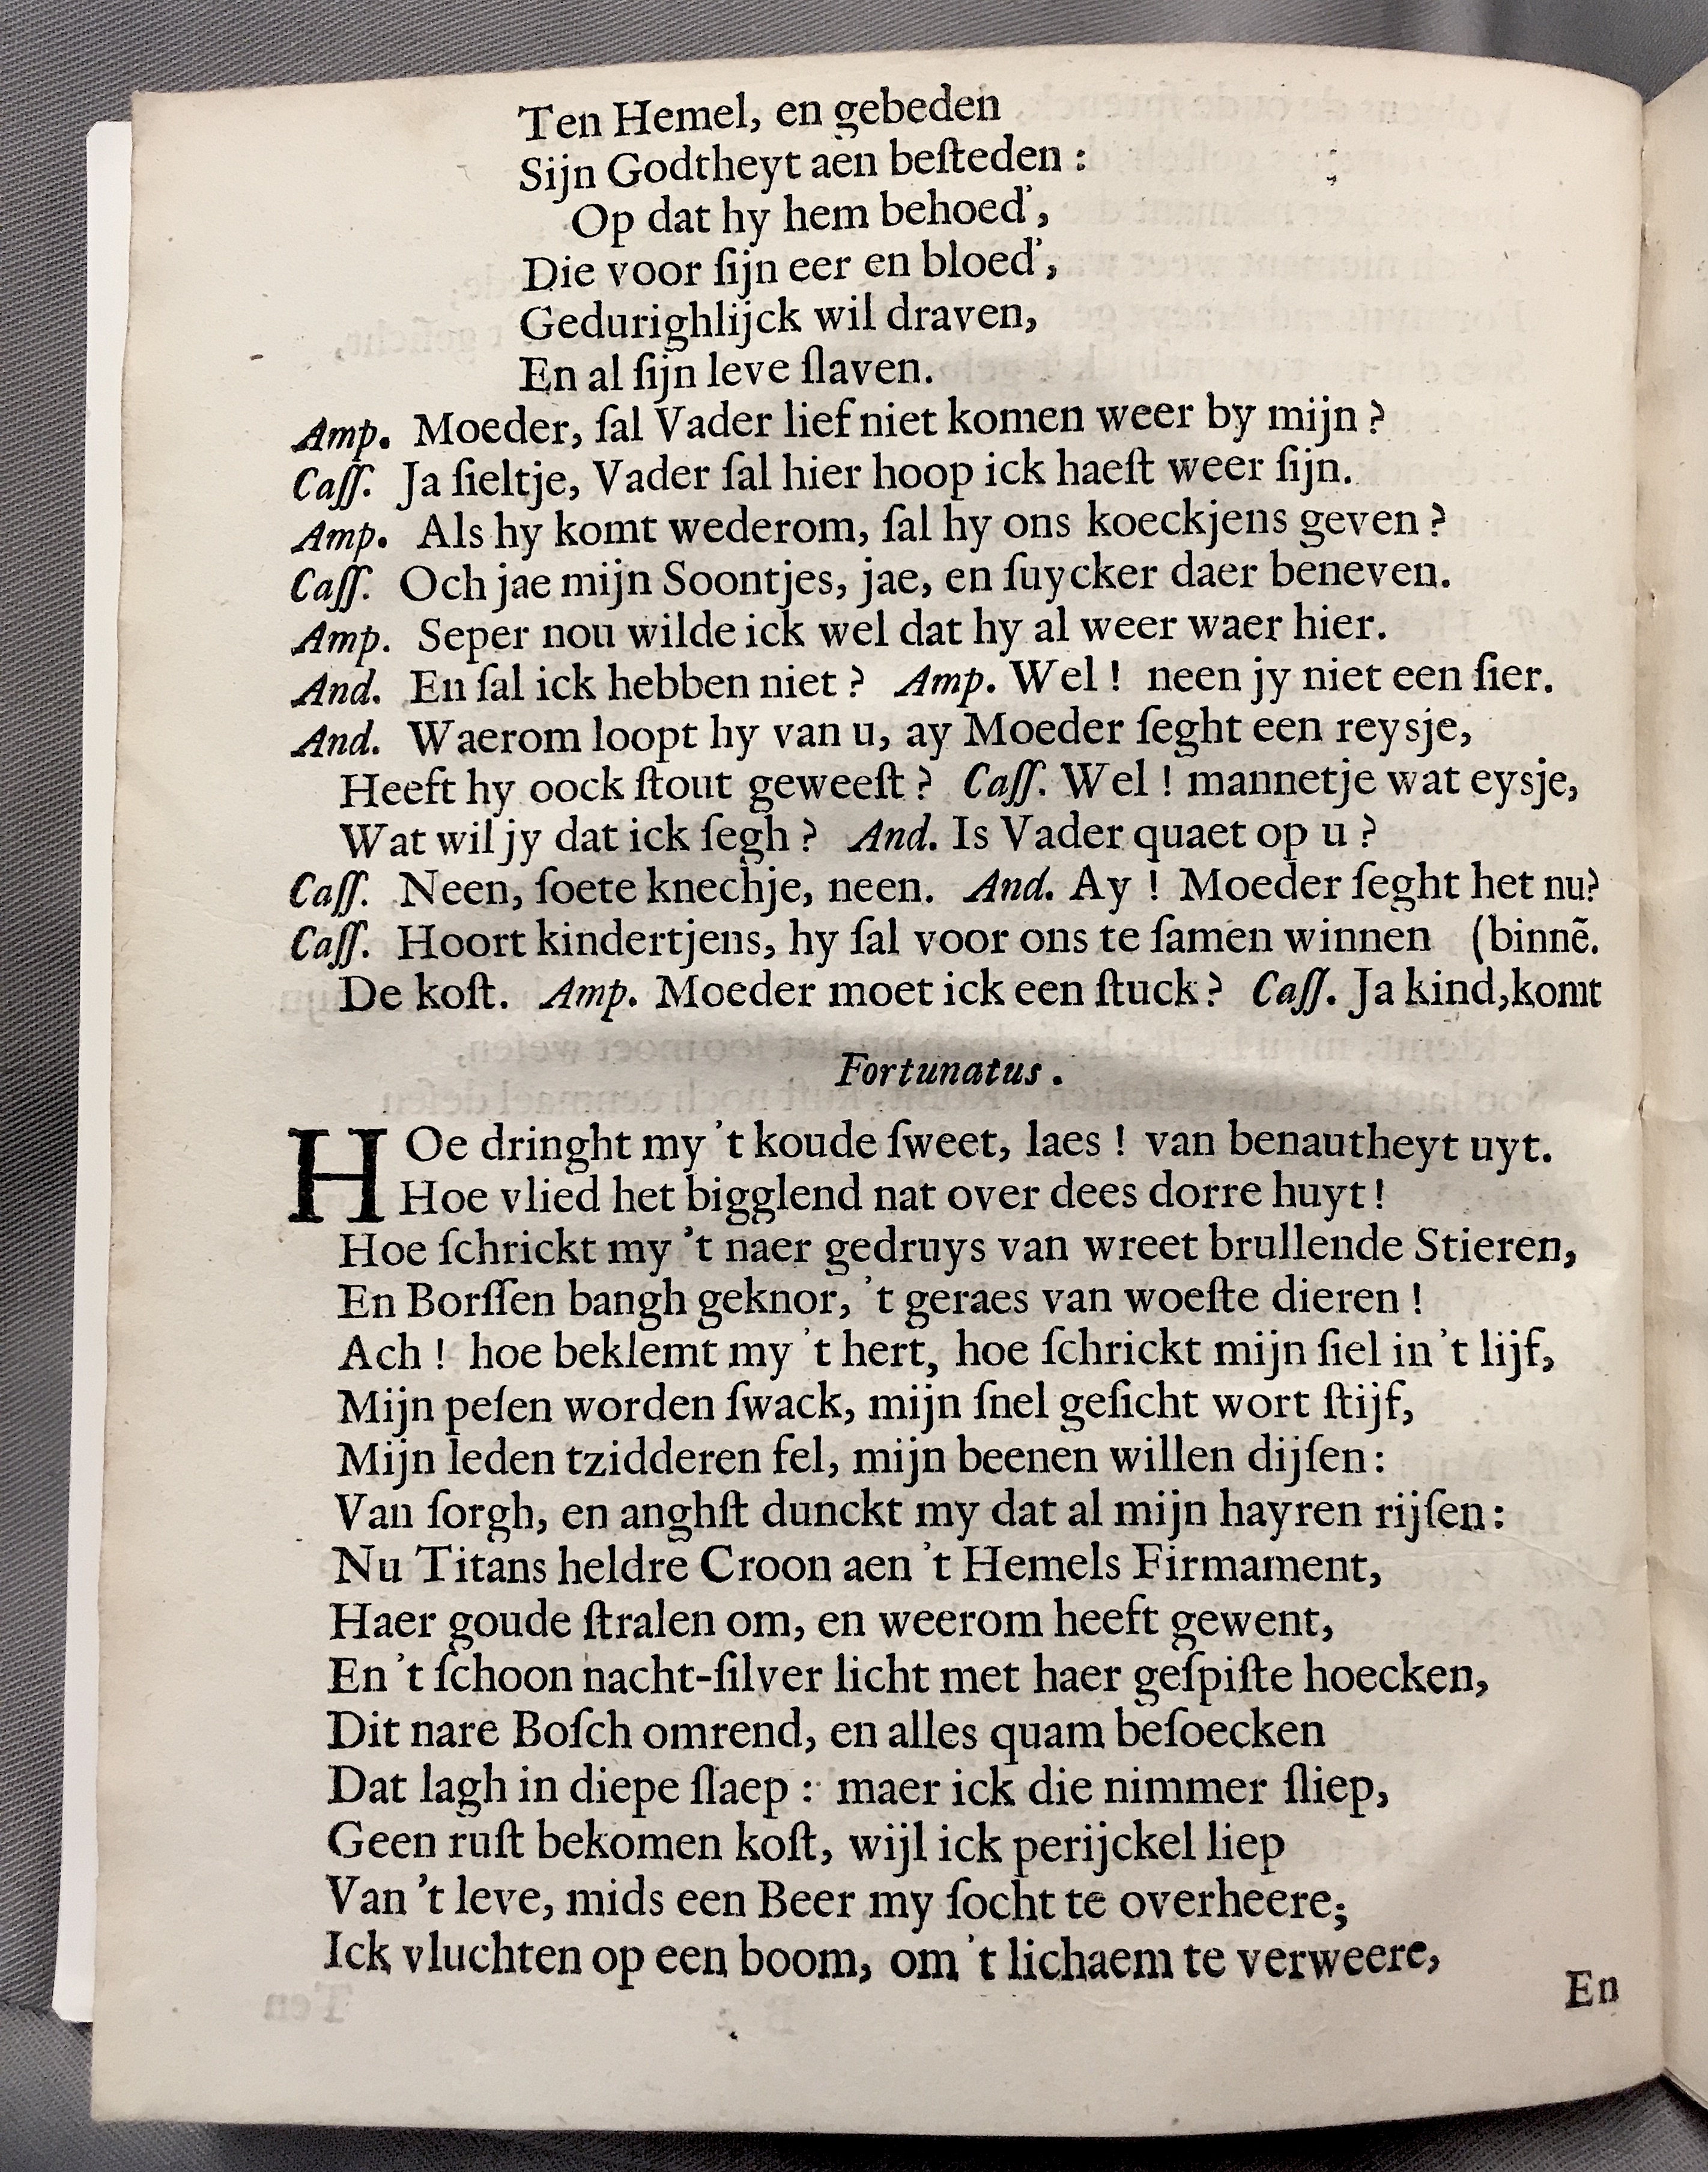 Ten Hemel, en gebeden
Sijn Godtheyt aen beſteden :
Op dat hy hem behoed',
Die voor ſijn eer en bloed',
Gedurighlijck wil draven,
En al ſijn leve ſlaven.
Amp. Moeder, ſal Vader lief niet komen weer by mijn ?
Caſſ. Ja ſieltje, Vader ſal hier hoop ick haeſt weer ſijn.
Amp. Als hy komt wederom, ſal hy ons koeckjens geven ?
Caſſ. Och jae mijn Soontjes, jae, en ſuycker daer beneven.
Amp. Seper nou wilde ick wel dat hy al weer waer hier.
And. En ſal ick hebben niet ? Amp. Wel ! neen jy niet een ſier.
And. Waerom loopt hy van u, ay Moeder ſeght een reysje,
Heeft hy oock ſtout geweeſt ? Caſſ. Wel ! mannetje wat eysje,
Wat wil jy dat ick ſegh ? And. Is Vader quaet op u ?
Caſſ. Neen, ſoete knechje, neen. And. Ay ! Moeder ſeght het nu?
Caſſ. Hoort kindertjens, hy ſal voor ons te ſamen winnen (binnẽ.
De koſt. Amp. Moeder moet ick een ſtuck ? Caſſ. Ja kind,komt
Fortunatus.
HOe dringht my 't koude ſweet, laes ! van benautheyt uyt.
Hoe vlied het bigglend nat over dees dorre huyt !
Hoe ſchrickt my 't naer gedruys van wreet brullende Stieren,
En Borſſen bangh geknor, 't geraes van woeſte dieren !
Ach ! hoe beklemt my 't hert, hoe ſchrickt mijn ſiel in 't lijf,
Mijn peſen worden ſwack, mijn ſnel geſicht wort ſtijf,
Mijn leden tzidderen fel, mijn beenen willen dijſen :
Van ſorgh, en anghſt dunckt my dat al mijn hayren rijſen :
Nu Titans heldre Croon aen 't Hemels Firmament,
Haer goude ſtralen om, en weerom heeft gewent,
En 't ſchoon nacht-ſilver licht met haer geſpiſte hoecken,
Dit nare Boſch omrend, en alles quam beſoecken
Dat lagh in diepe ſlaep : maer ick die nimmer ſliep,
Geen ruſt bekomen koſt, wijl ick perijckel liep
Van 't leve, mids een Beer my ſocht te overheere;
Ick vluchten op een boom, om 't lichaem te verweere,
En